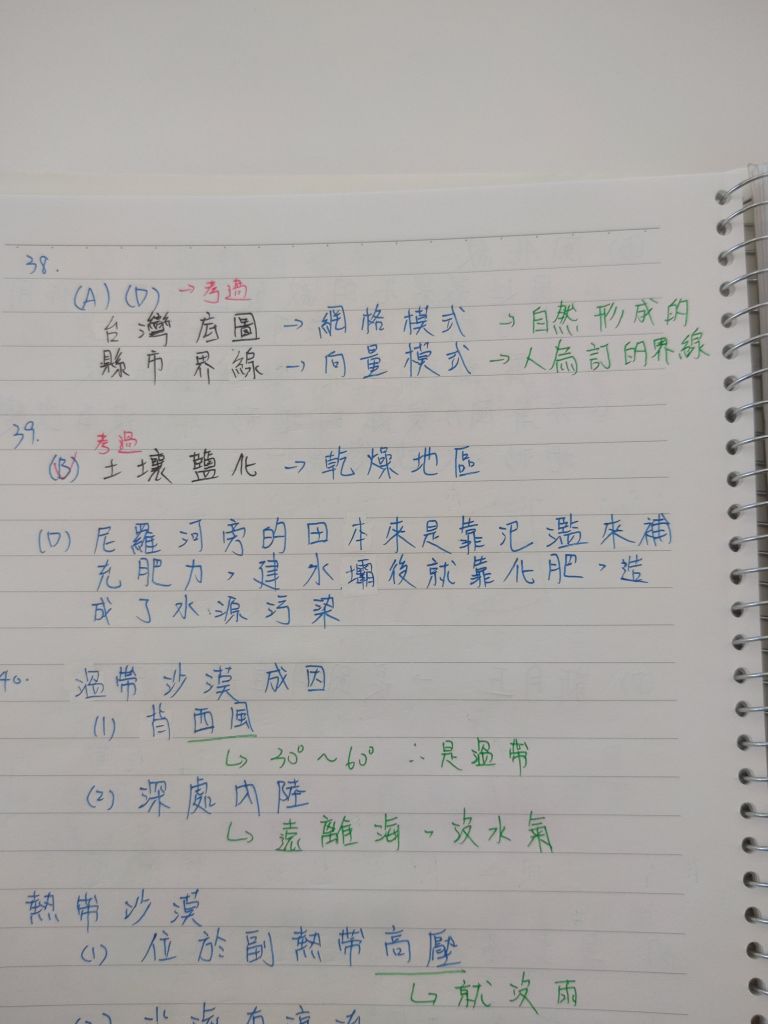 38.
(A)(D) →考過
台灣底圖→網格模式 →自然形成的
縣市界線→向量模式→人為訂的界線
39.
考過
(B) 土壤鹽化→乾燥地區
(D) 尼羅河旁的田本來是靠氾濫來補
充肥力,建水壩後就靠化肥,造
成了水源污染
40. 溫帶沙漠成因
(1) 背西風
↳ 30°~60° ∴是溫帶
(2) 深處內陸
↳ 遠離海、沒水氣
熱帶沙漠
(1) 位於副熱帶高壓
↳ 就沒雨